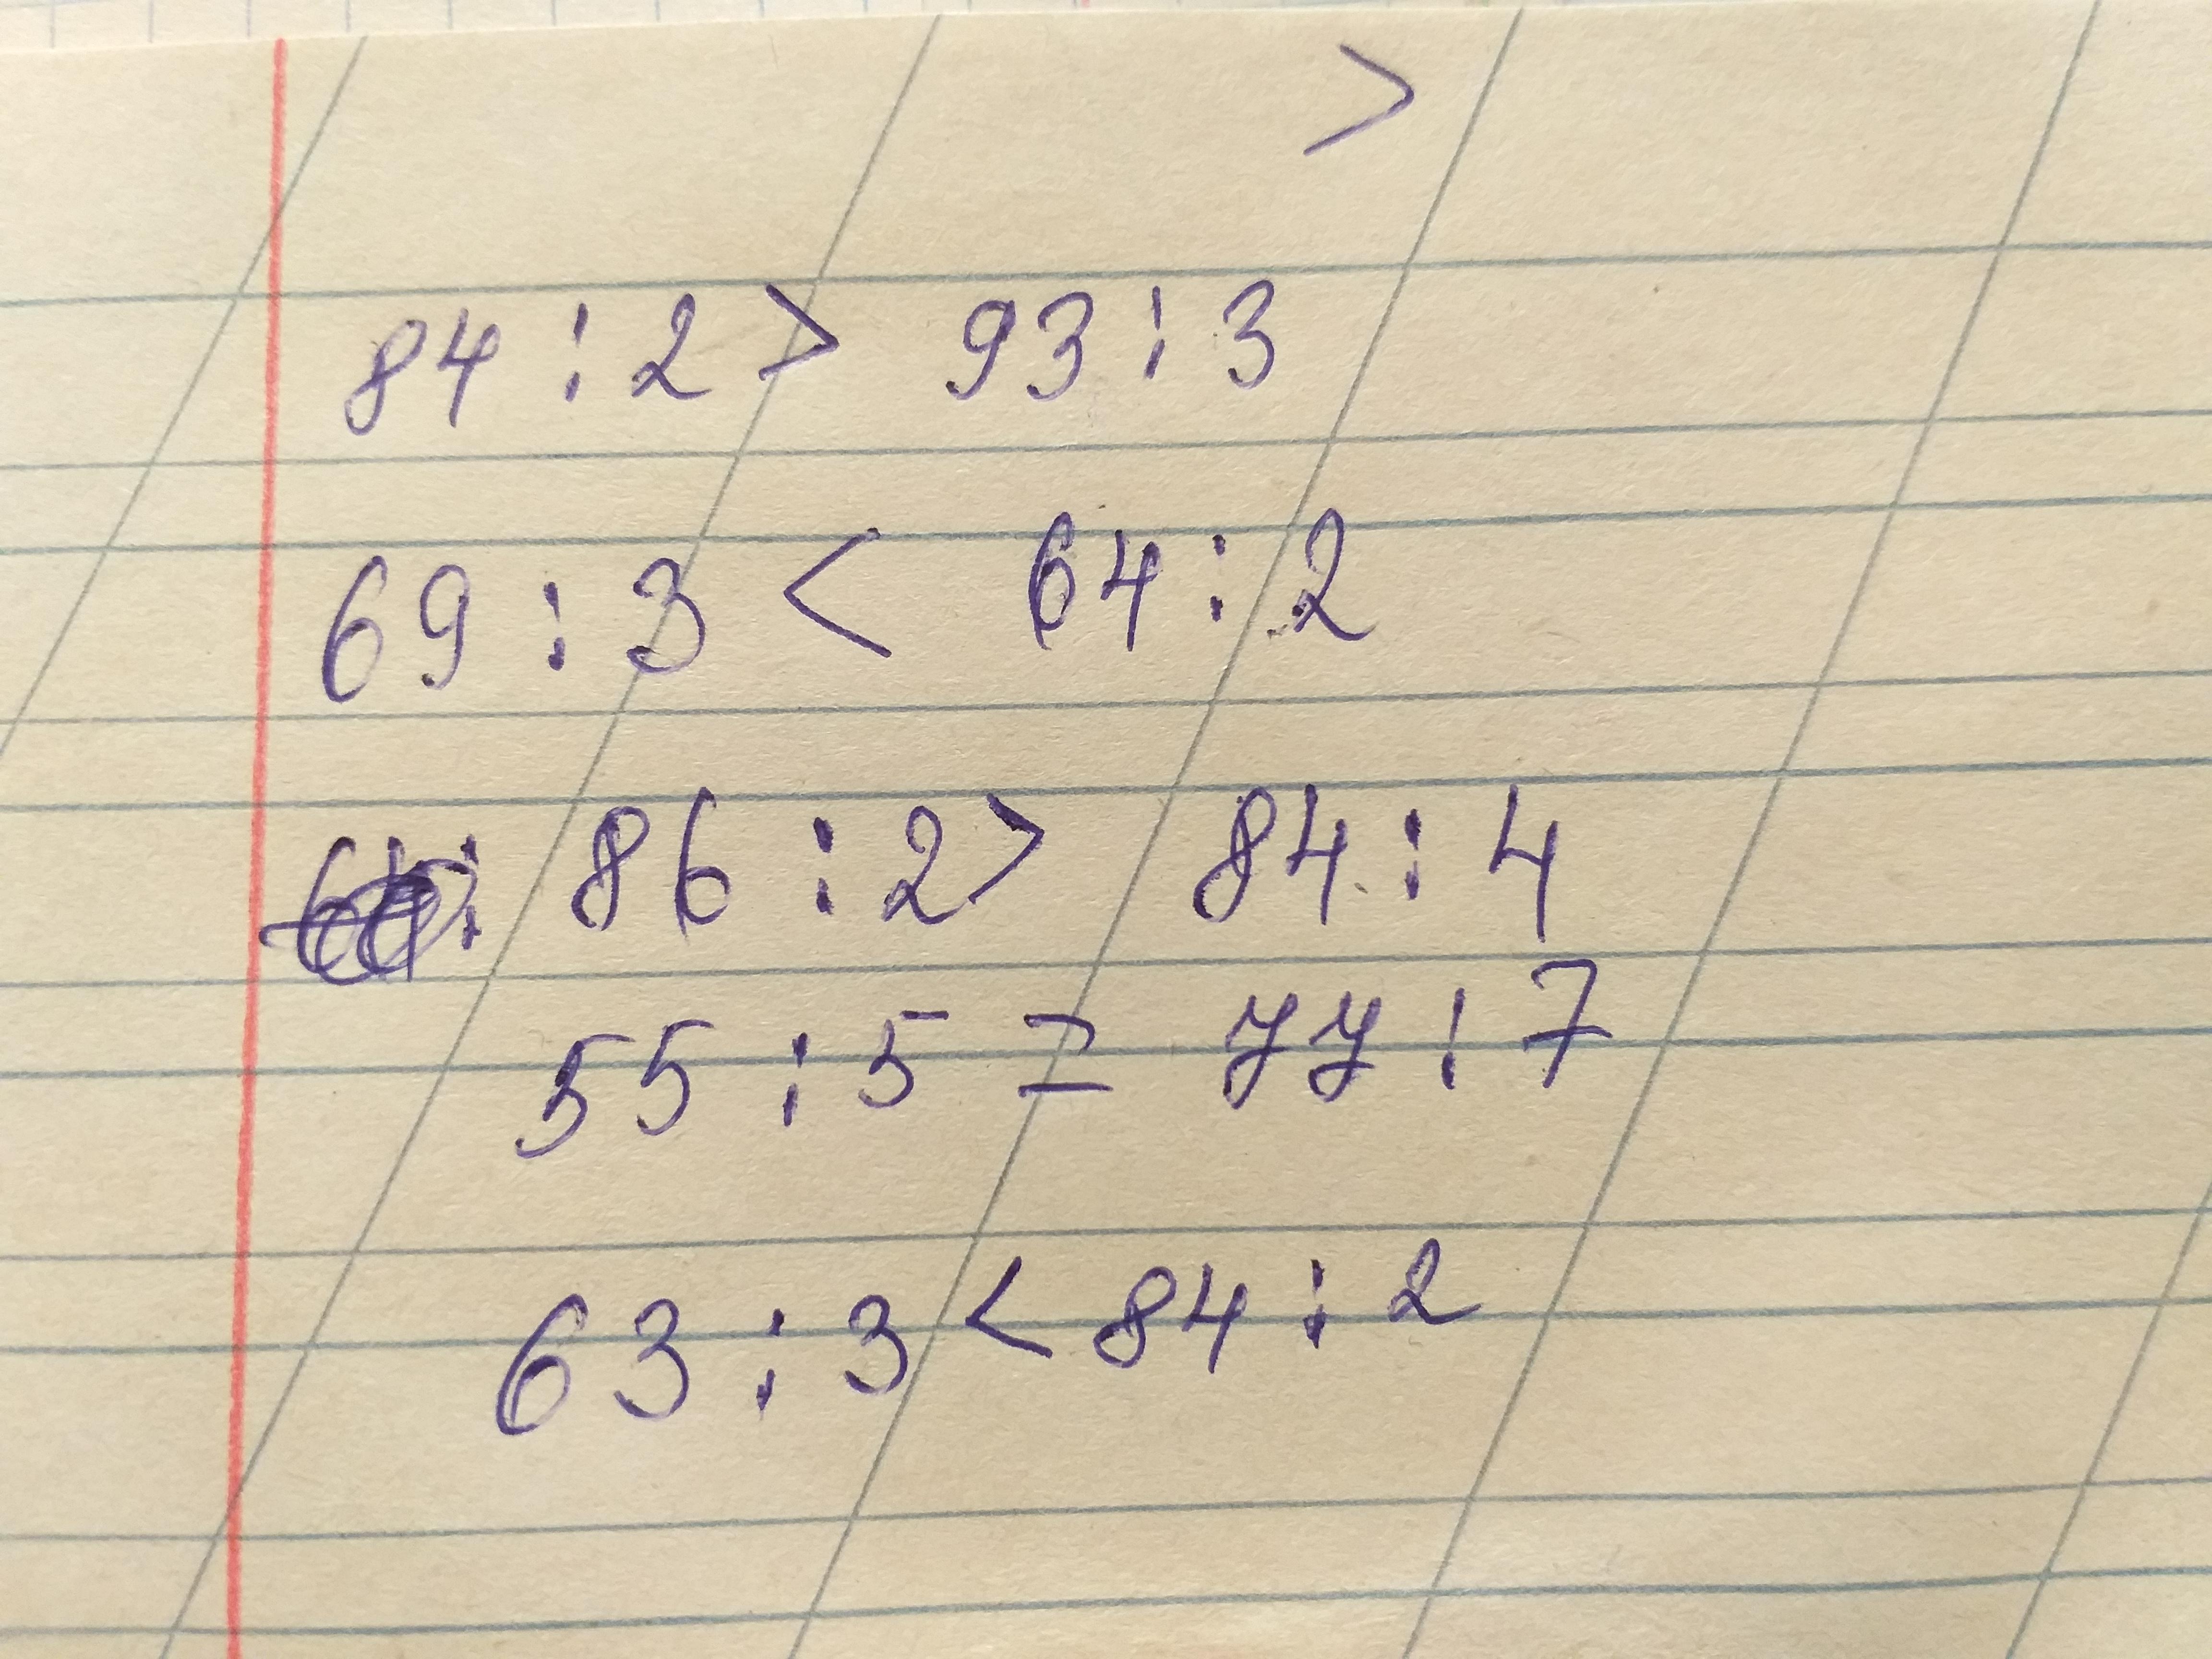 >
84 : 2 > 93 : 3
69 : 3 < 64 : 2
86 : 2 > 84 : 4
55 : 5 = 77 : 7
63 : 3 < 84 : 2